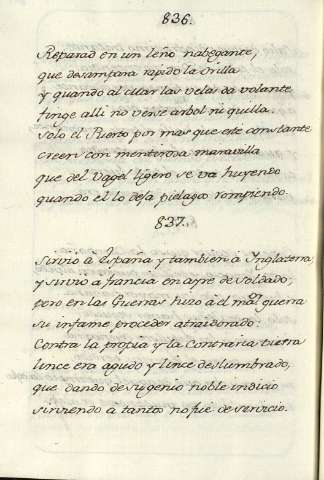 836.
Reparad en un leño nabegante,
que desampara rapido la orilla
y quando al citar las velas da volante
finge alli no verse arbol ni quilla.
Solo el Puerto por mas que este constante
creen con mentirosa maravilla
que del Vagel ligero se va huyendo
quando el lo deja pielagos rompiendo.
837.
Sirvio à España y tambien à Inglaterra,
y sirvio a francia en ayre de Soldado;
pero en las Guerras hizo à el mal guerra
su infame proceder atraidorado:
Contra la propia y la Contraria tierra
lince era agudo y lince deslumbrado,
que dando de su genio noble indicio
sirviendo à tantos no fue de servicio.